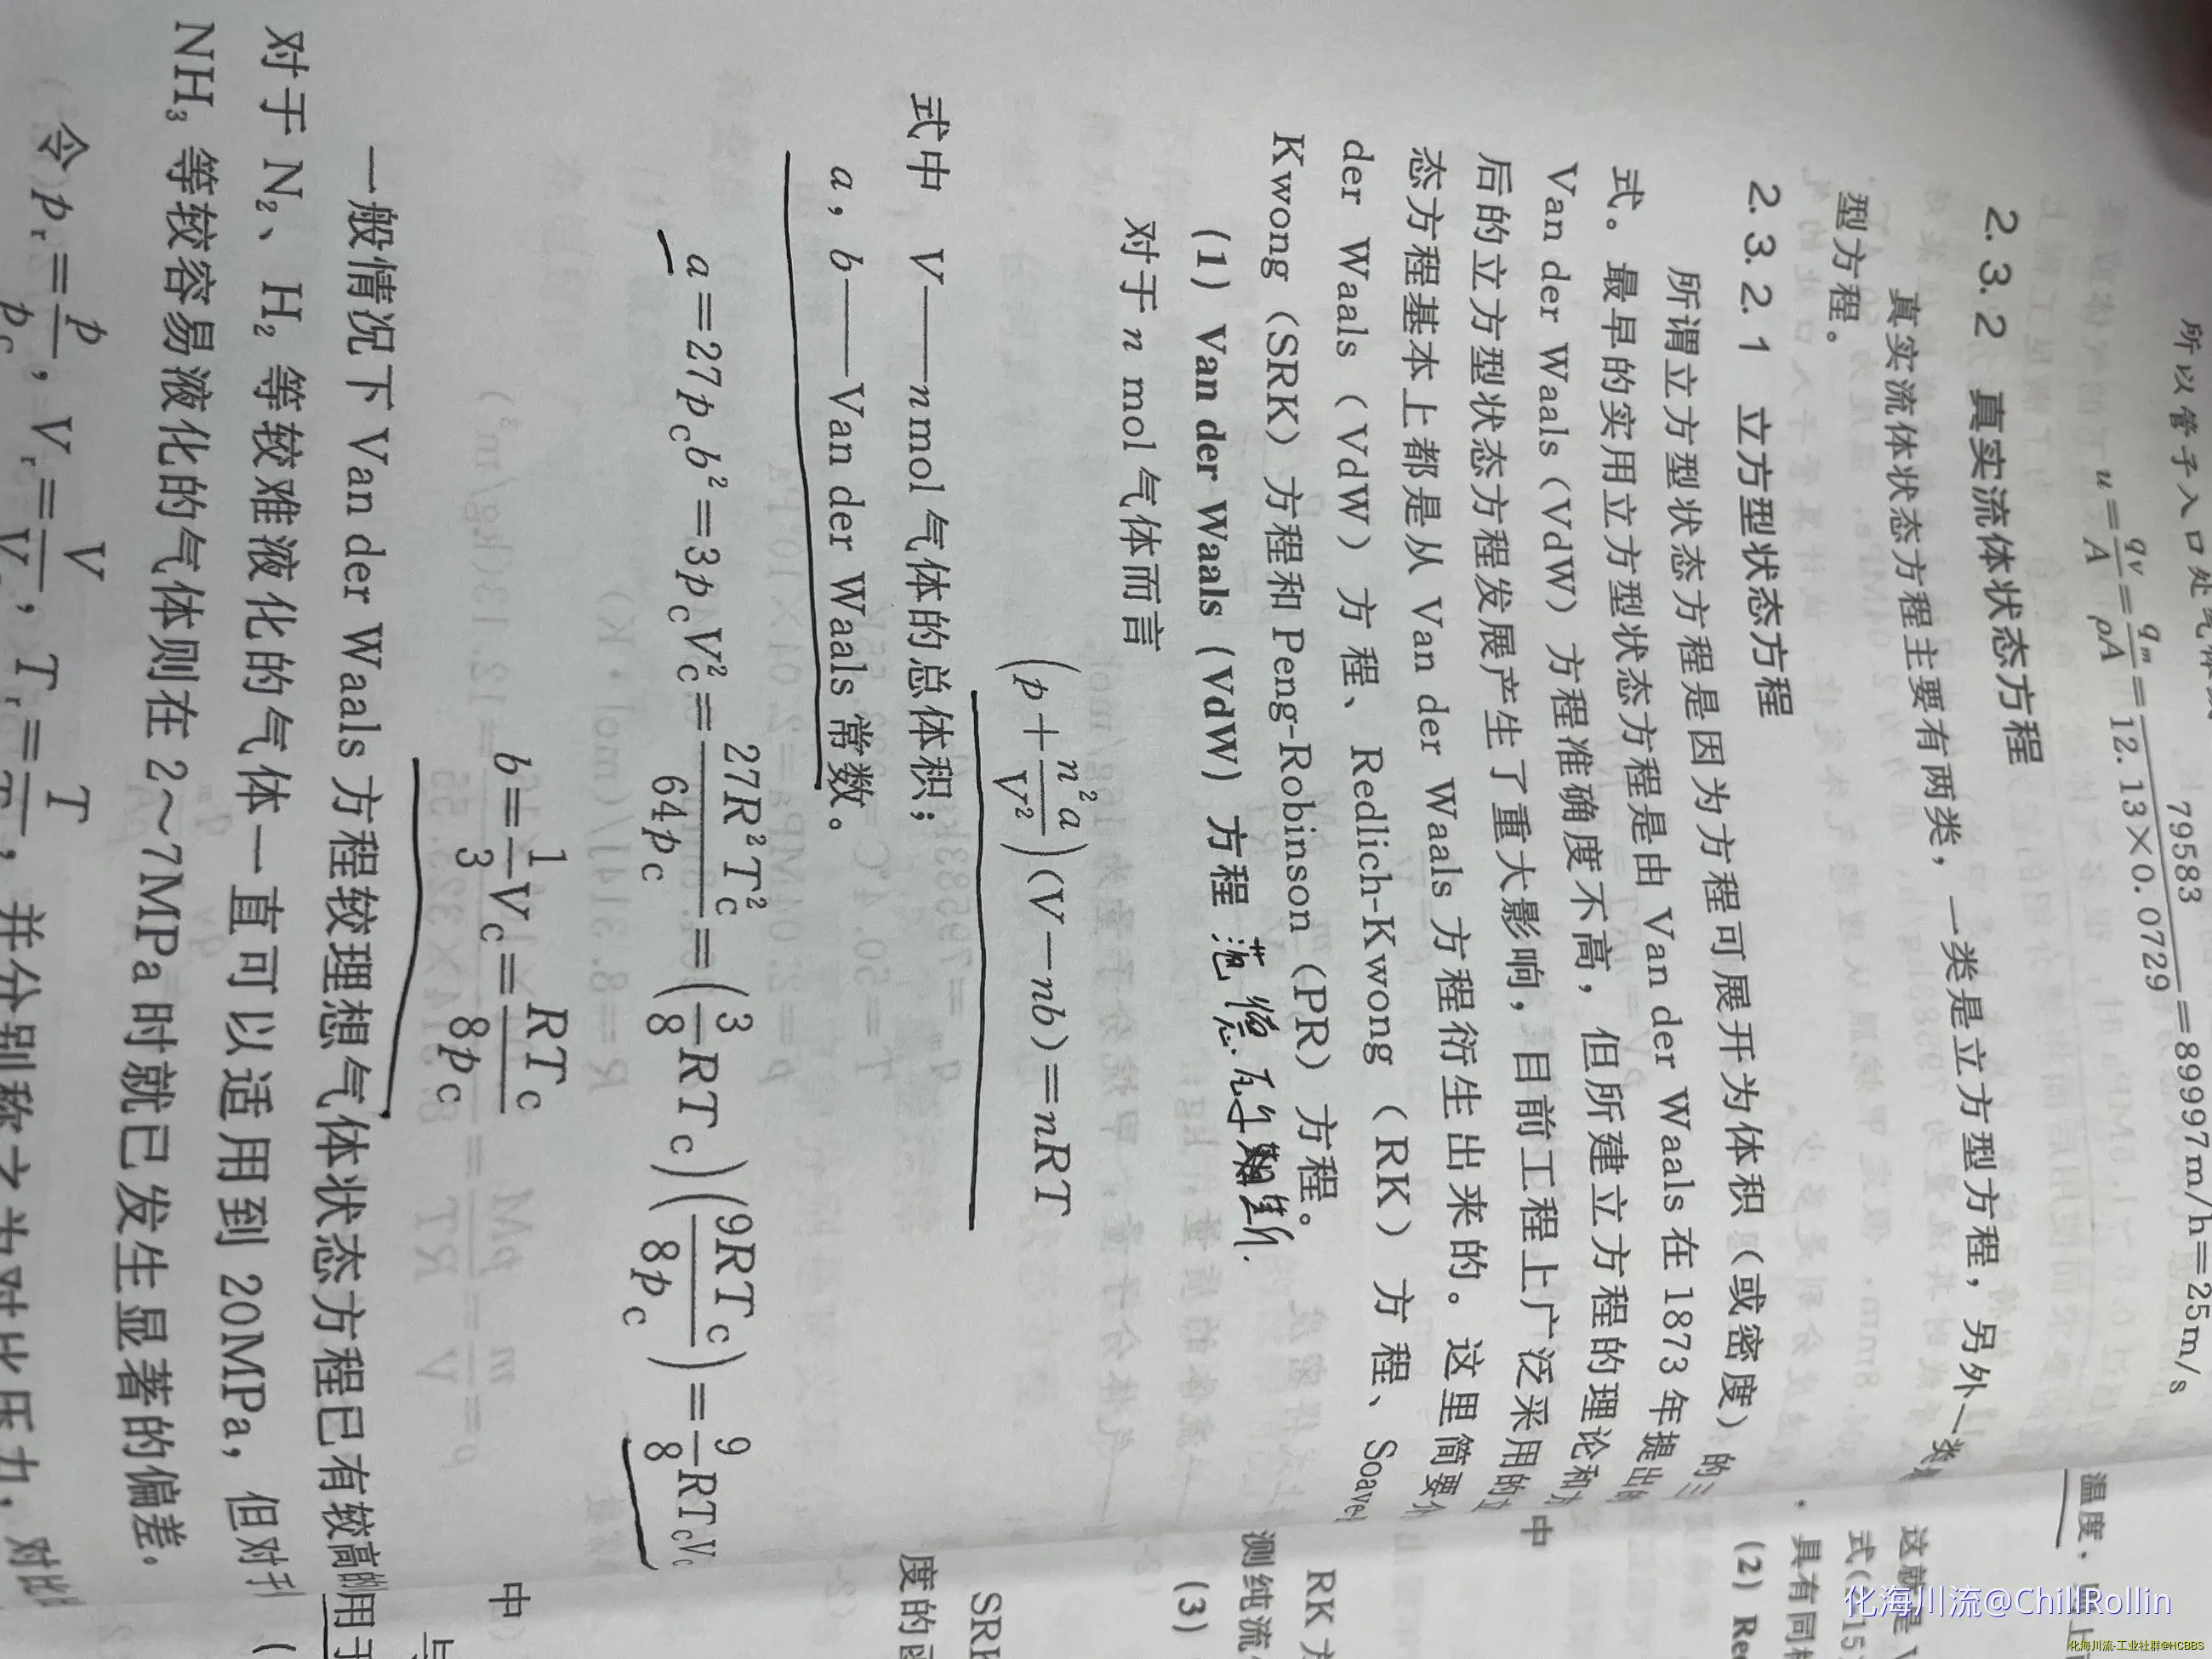 所以管子入口处气体
u=q_V/A=q_m/ρA=79583/(12.13×0.0729)=89997m/h=25m/s
2.3.2 真实流体状态方程
真实流体状态方程主要有两类，一类是立方型方程，另外一类
型方程。
2.3.2.1 立方型状态方程
所谓立方型状态方程是因为方程可展开为体积（或密度）的三
式。最早的实用立方型状态方程是由 Van der Waals 在 1873 年提出
Van der Waals (VdW) 方程准确度不高，但所建立方程的理论和方
后的立方型状态方程发展产生了重大影响，目前工程上广泛采用的立
态方程基本上都是从 Van der Waals 方程衍生出来的。这里简要介
der Waals（VdW）方程、Redlich-Kwong（RK）方程、Soave
Kwong（SRK）方程和 Peng-Robinson（PR）方程。
(1) Van der Waals (VdW) 方程 范德瓦尔斯
对于 n mol 气体而言
(p+n²a/V²)(V−nb)=nRT
式中 V——n mol 气体的总体积；
a，b——Van der Waals 常数。
a=27p_cb²=3p_cV_c²=27R²T_c²/64p_c=(3/8RT_c)(9RT_c/8p_c)=9/8RT_cV_c
b=1/3V_c=RT_c/8p_c
一般情况下 Van der Waals 方程较理想气体状态方程已有较高的
对于 N₂、H₂ 等较难液化的气体一直可以适用到 20MPa，但对
NH₃ 等较容易液化的气体则在 2～7MPa 时就已发生显著的偏差。
令 p_r=p/p_c，V_r=V/V_c，T_r=T/T_c，并分别称之为对比压力，对比
温度.
这就是
式(2-15
具有同
(2) Re
中
RK 方
测纯流
(3)
SRK
度的函
中
用于
与
化海川流@Chill Rollin
化海川流-工业社群@HCBBS